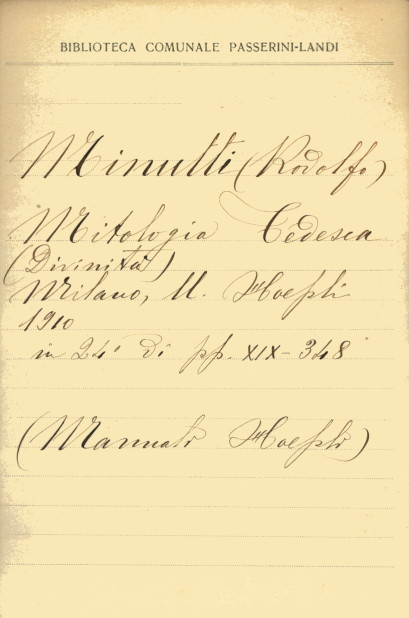 BIBLIOTECA COMUNALE PASSERINI-LANDI
Minutti (Rodolfo)
Mitologia Tedesca
(Divinità)
Milano, U. Hoepli
1910
in 24° di pp. XIX-348
(Manuali Hoepli)